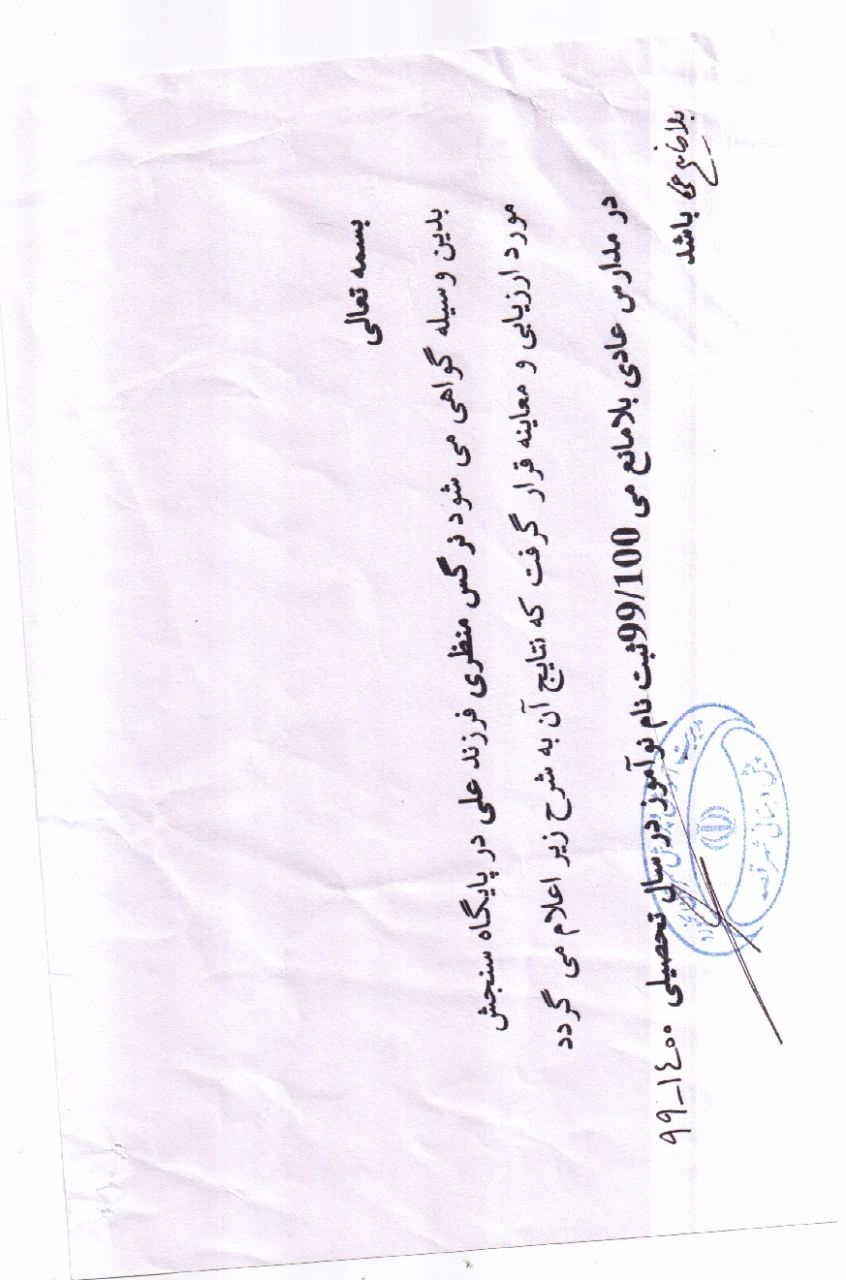 بسمه تعالی
بدین وسیله گواهی می شود نرگس منظری فرزند علی در پایگاه سنجش
مورد ارزیابی و معاینه قرار گرفت که نتایج آن به شرح زیر اعلام می گردد
در مدارس عادی بلامانع می 99/100ثبت نام نوآموز در سال تحصیلی ۱۴۰۰-۹۹
باشد
بلامانع